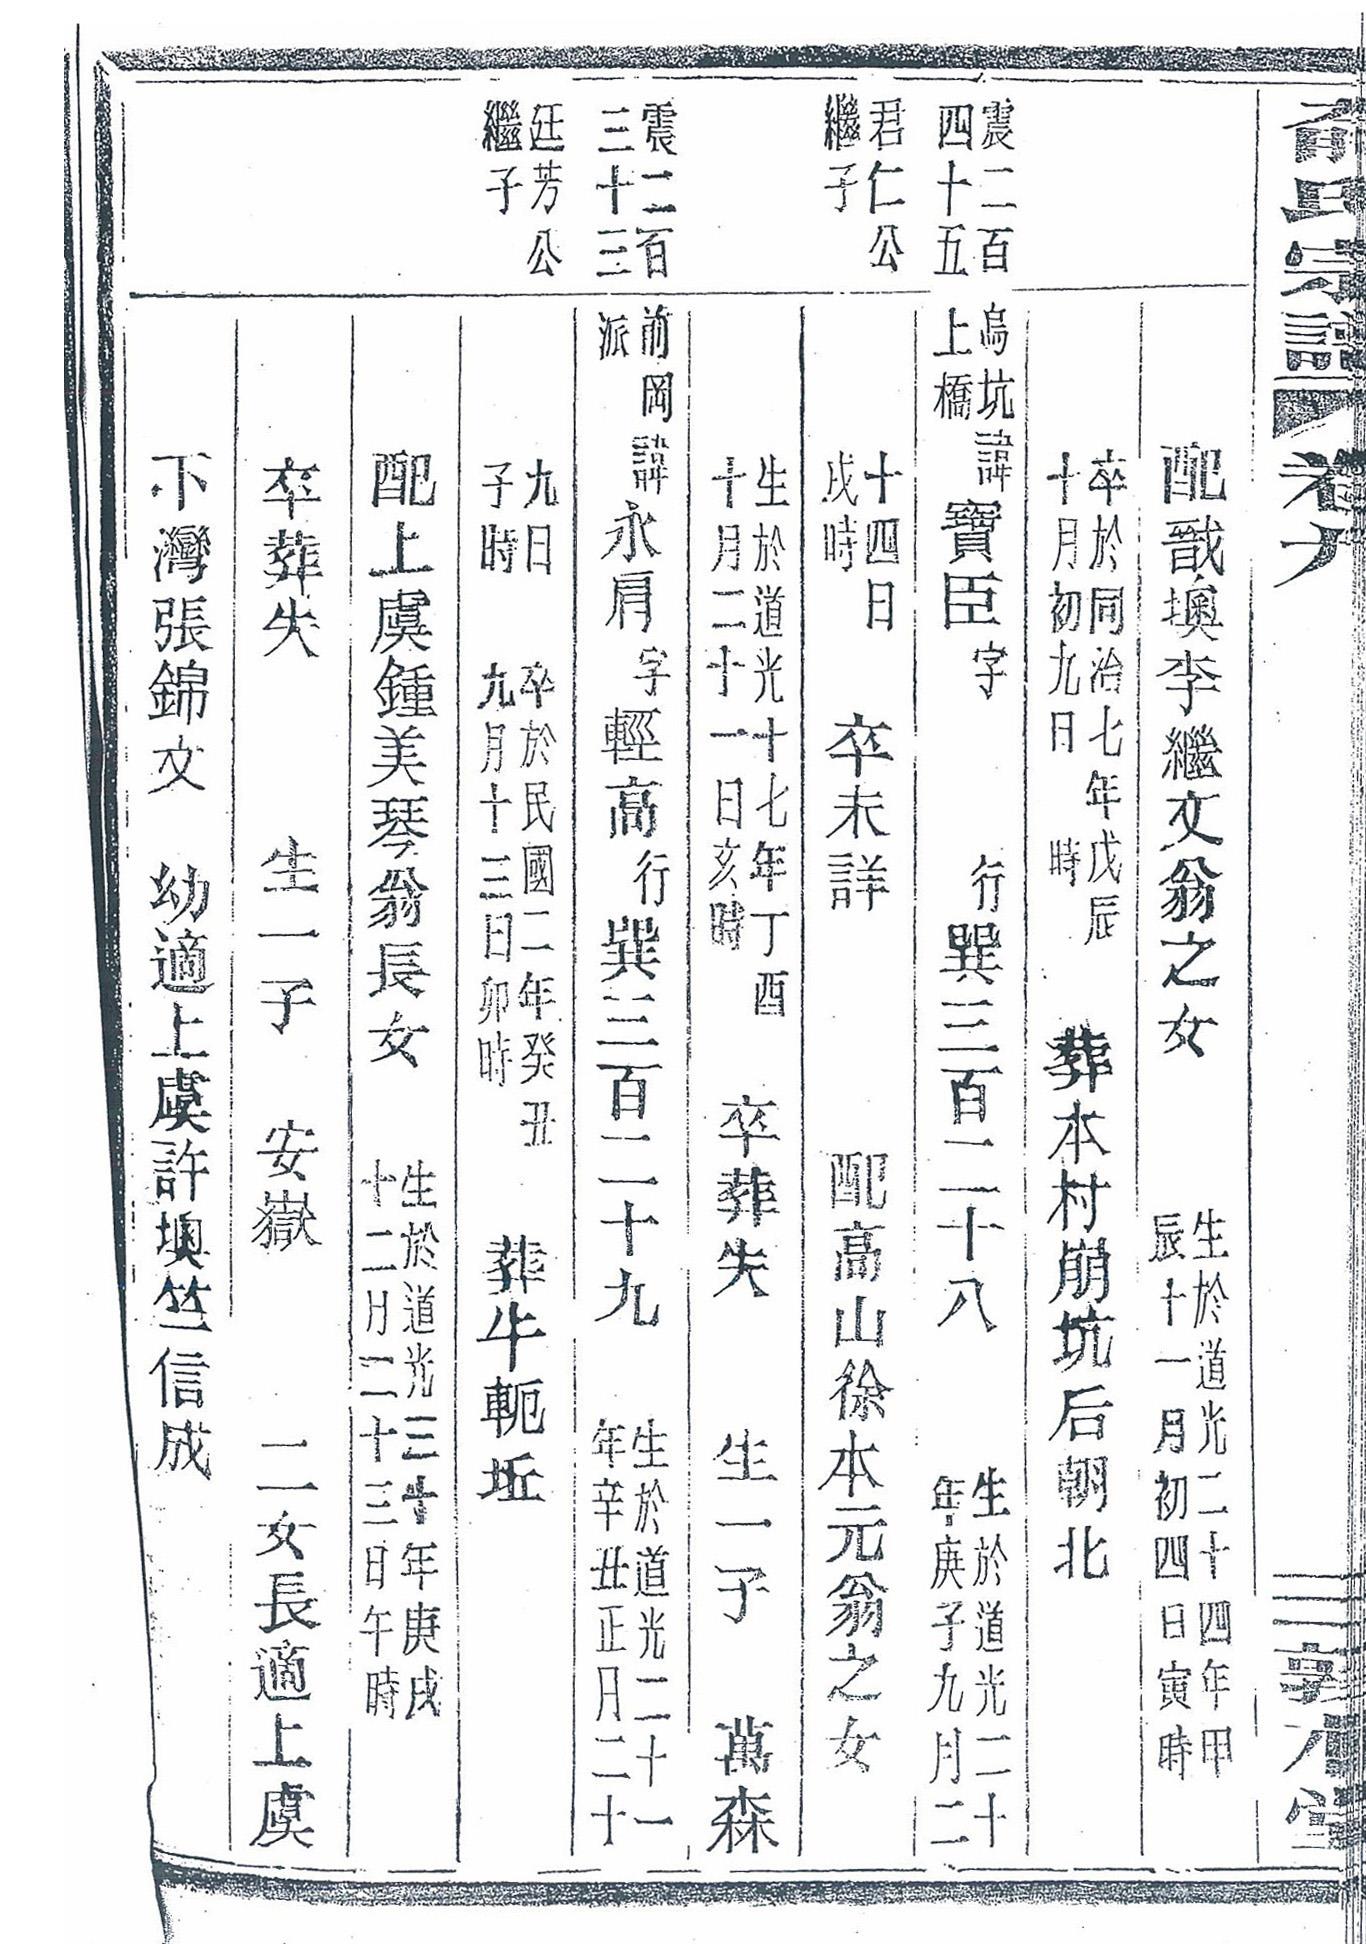 俞氏宗譜
卷九
敦本堂
配戩墺李繼文翁之女
生於道光二十四年甲
辰十一月初四日寅時
卒於同治七年戊辰
十月初九日 時
葬本村崩坑后朝北
震二百
四十五
烏坑
上橋
諱寶臣字 行巽三百二十八
生於道光二十
年庚子九月二
君仁公
繼子
十四日
戌時
卒未詳 配高山徐本元翁之女
生於道光十七年丁酉
十月二十一日亥時
卒葬失 生一子 萬森
震二百
三十三
前岡
派
諱永肩字輕高行巽三百二十九
生於道光二十一
年辛丑正月二十
廷芳公
繼子
九日
子時
卒於民國二年癸丑
九月十三日卯時
葬牛軛坵
配上虞鍾美琴翁長女
生於道光三十年庚戌
十二月二十三日午時
卒葬失 生一子 安嶽 二女長適上虞
下灣張錦文 幼適上虞許墺竺信成